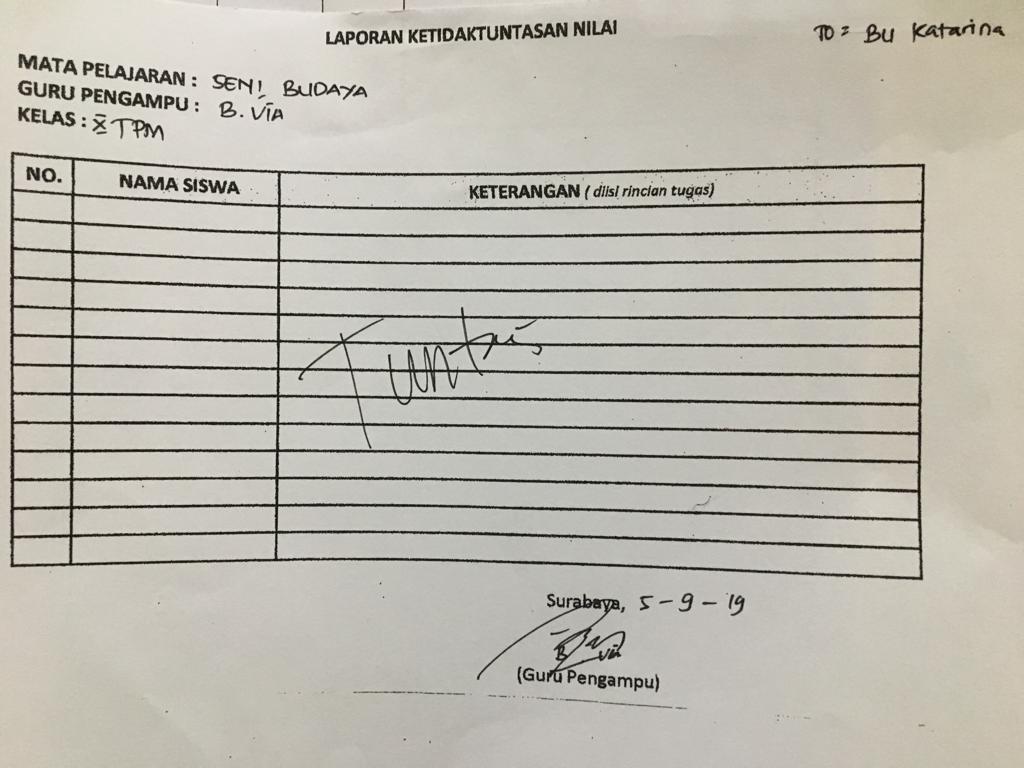 LAPORAN KETIDAKTUNTASAN NILAI
TO = BU Katarina
MATA PELAJARAN : SENI BUDAYA
GURU PENGAMPU : B. VIA
KELAS : X TPM
NO. NAMA SISWA KETERANGAN ( diisi rincian tugas)
Tuntas
Surabaya, 5 - 9 - 19
B. Via
(Guru Pengampu)